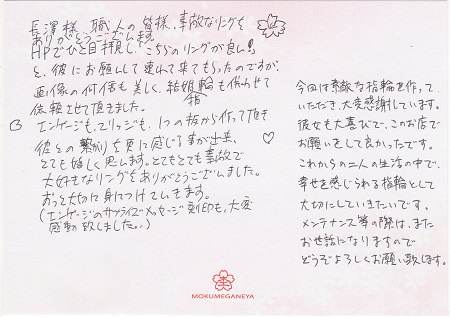 長澤様、職人の皆様、素敵なリングを
ありがとうございます。
HPでひと目拝見し、こちらのリングが良い!
と、彼にお願いして連れて来てもらったのですが、
画像の何倍も美しく、結婚指輪も併わせて
依頼させて頂きました。
エンゲージも、マリッジも、1つの板から作って頂き
彼との繋がりを更に感じる事が出来、
とても嬉しく思います。とてもとても素敵で
大好きなリングをありがとうございました。
ずっと大切に身につけていきます。
(エンゲージのサプライズメッセージ刻印も、大変
感動致しました。)
今回は素敵な指輪を作って
いただき、大変感謝しています。
彼女も大喜びで、このお店で
お願いをして良かったです。
これからの二人の生活の中で、
幸せを感じられる指輪として
大切にしていきたいです。
メンテナンス等の際は、また
お世話になりますので
どうぞよろしくお願い致します。
MOKUMEGANEYA